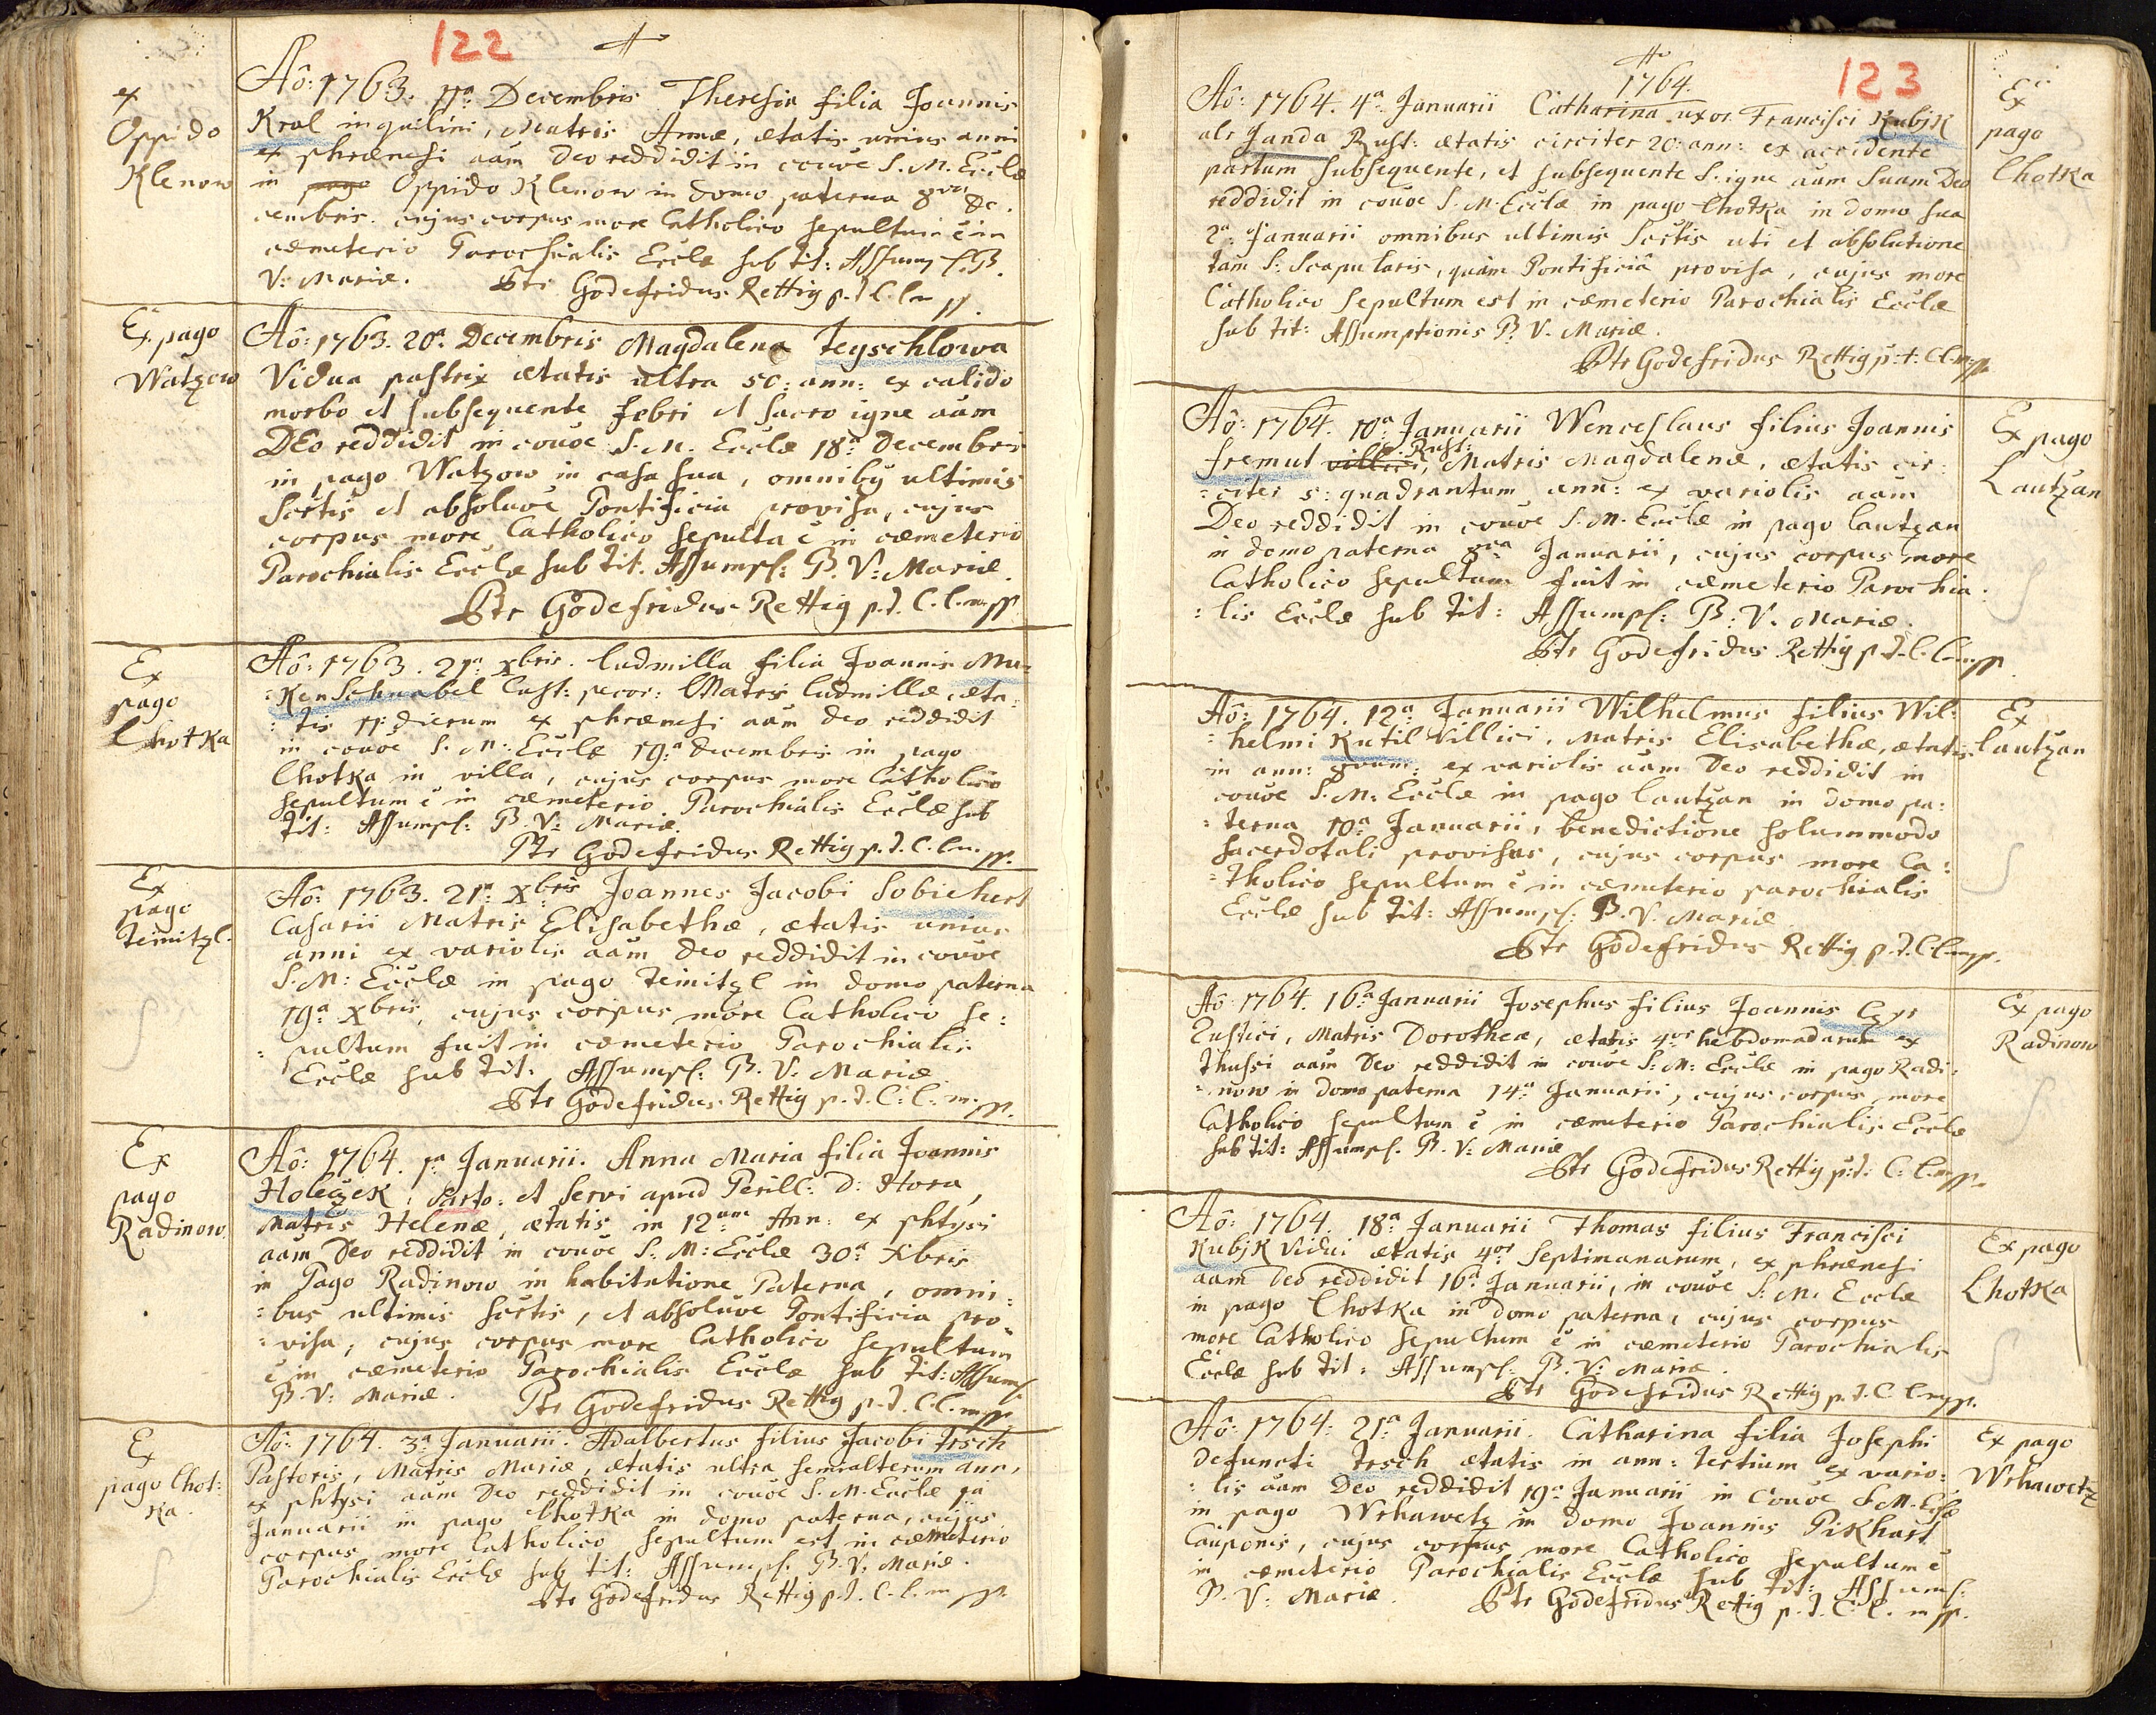 122
ex
Oppido
Klenow
Aô: 1763. 11ª Decembris Theresia filia Joannis
Kral inquilini, Matris Annæ, ætatis unius anni
ex phrænesi aãm Deo reddidit in couõe S. M. Ecclæ
in pago Oppido Klenow in domo paterna 9na De.
cembris. cujus corpus more Catholico sepultum ẽ in
cæmeterio Parochialis Ecclæ sub tit: Assump: B.
V: Mariæ.
Ptr Godefridus Rettig p.t. C. l. m pp.
Ex pago
Watzow
Aô: 1763. 20ª Decembris Magdalena Teyschlowa
Vidua pastrix ætatis ultra 50: ann: ex calido
morbo et subsequente febri et sacro igne aãm
DEo reddidit in couõe S. M. Ecclæ 18ª Decembris
in pago Watzow in casa sua, omnibg ultimis
Sctis et absoluõe Pontificia provisa, cujus
corpus more Catholico sepulta ẽ in cæmeterio
Parochialis Ecclæ sub tit. Assumpt: B. V: Mariæ.
Ptr Godefridus Rettig p.t. C. l. m pp
Ex
pago
Lhotka
Aô: 1763. 21ª Xbris. Ludmilla filia Joannis Mu:
:kenschnabel Cust: pecor: Matris Ludmillæ æta:
:tis 11: dierum ex phrænesi aãm Deo reddidit
in couõe S. M: Ecclæ 19ª Decembris in pago
Lhotka in villa, cujus corpus more Catholico
sepultum ẽ in cæmeterio Parochialis Ecclæ sub
tit: Assumpt: B. V: Mariæ.
Ptr Godefridus Rettig p.t. C. l. m. pp.
Ex
pago
Teinitzl.
Aô: 1763. 21ª Xbris Joannes Jacobi Sobiehert
Casarii Matris Elisabethæ, ætatis unius
anni ex variolis aãm Deo reddidit in couõe
S. M: Ecclæ in pago Teinitzl in domo paterna
19ª Xbris, cujus corpus more Catholico se:
:pultum fuit in cæmeterio Parochialis
Ecclæ sub tit: Assumpt: B. V: Mariæ.
Ptr Godefridus Rettig p.t. C: l: m. pp.
Ex
pago
Radinow.
Aô: 1764. 1ª Januarii. Anna Maria filia Joannis
Holeczek, Sarto: et servi apud Perill: D: Hora,
Matris Helenæ, ætatis in 12um Ann: ex phtysi
aãm Deo reddidit in couõe S: M: Ecclæ 30ª Xbris
in Pago Radinow in habitatione Paterna, omni:
:bus ultimis Sctis, et absoluõe Pontificia pro:
:visa, cujus corpus more Catholico sepultum
ẽ in cæmeterio Parochialis Ecclæ sub tit: Assump:
B. V: Mariæ.
Ptr Godefridus Rettig p.t. C. l. m pp
Ex
pago Lhot:
ka.
Aô: 1764. 3ª Januarii. Adalbertus filius Jacobi Irsch
Pastoris, Matris Mariæ, ætatis ultra semialterum ann,
ex phtysi aãm Deo reddidit in couõe S. M. Ecclæ 1a
Januarii in pago Lhotka in domo paterna, cujus
corpus more Catholico sepultum est in cæmeterio
Parochialis Ecclæ sub tit: Assumpt: B. V: Mariæ.
Ptr Godefridus Rettig p.t. C. l. m pp.
123
1764.
Ex
pago
Lhotka
Aô: 1764. 4ª Januarii Catharina uxor Francisci Kubjk
als Janda Rust: ætatis circiter 20: ann: ex accidente
partum subsequente, et subsequente S. igne aãm suam Deo
reddidit in couõe S. M. Ecclæ in pago Lhotka in domo sua
2ª Januarii omnibus ultimis Sctis uti et absolutione
tam S: Scapularis, quàm Pontificiâ provisa, cujus more
Catholico sepultum est in cæmeterio Parochialis Ecclæ
sub tit: Assumptionis B. V. Mariæ.
Ptr Godefridus Rettig p:t: C. l. m pp
Ex pago
Lautzan
Aô: 1764. 10ª Januarii Wenceslaus filius Joannis
Fremut villici, Rust: Matris Magdalenæ, ætatis cir:
:citer 5: quadrantum ann: ex variolis aãm
Deo reddidit in couõe S. M. Ecclæ in pago Lautzan
in domo paterna 8va Januarii, cujus corpus more
Catholico sepultum fuit in cæmeterio Parochia:
:lis Ecclæ sub tit: Assumpt: B: V. Mariæ.
Ptr Godefridus Rettig p.t. C. l. m pp
Ex
Lautzan
Aô: 1764. 12ª Januarii Wilhelmus filius Wil:
:helmi Kutil Villici, Matris Elisabethæ, ætatis
in ann: 9num: ex variolis aãm Deo reddidit in
couõe S. M: Ecclæ in pago Lautzan in domo pa:
:terna 10ª Januarii, benedictione solummodo
sacerdotali provisus, cujus corpus more Ca:
:tholico sepultum ẽ in cæmeterio parochialis
Ecclæ sub tit: Assumpt: B. V. Mariæ
Ptr Godefridus Rettig p.t. C. l. m pp.
Ex pago
Radinow
Aô: 1764. 16ª Januarii Josephus filius Joannis
Rustici, Matris Dorotheæ, ætatis 4or hebdomadarum ex
thussi aãm Deo reddidit in couõe S: M: Ecclæ in pago Radi:
:now in domo paterna 14ª Januarii, cujus corpus more
Catholico sepultum ẽ in cæmeterio Parochialis Ecclæ
sub tit: Assumpt. B. V: Mariæ
Ptr Godefridus Rettig p:t: C: l. m pp.
Ex pago
Lhotka
Aô: 1764. 18ª Januarii Thomas filius Francisci
Kubjk Vidui ætatis 4or Septimanarum, ex phrænesi
aãm Deo reddidit 16ª Januarii, in couõe S: M. Ecclæ
in pago Lhotka in domo paterna, cujus corpus
more Catholico sepultum ẽ in cæmeterio Parochialis
Ecclæ sub tit: Assumpt: B. V: Mariæ.
Ptr Godefridus Rettig p.t. C. l. m pp.
Ex pago
Wrhawetz
Aô: 1764. 21ª Januarii. Catharina filia Josephi
defuncti Irsch ætatis in ann: tertium ex vario:
:lis aãm Deo reddidit 19ª Januarii in Couõe S. M. Ecclæ
in pago Wrhawetz in domo Joannis Pikhart
Cauponis, cujus corpus more Catholico sepultum ẽ
in cæmeterio Parochialis Ecclæ sub tit: Assump:
B. V: Mariæ.
Ptr Godefridus Rettig p.t. C. l. m pp.